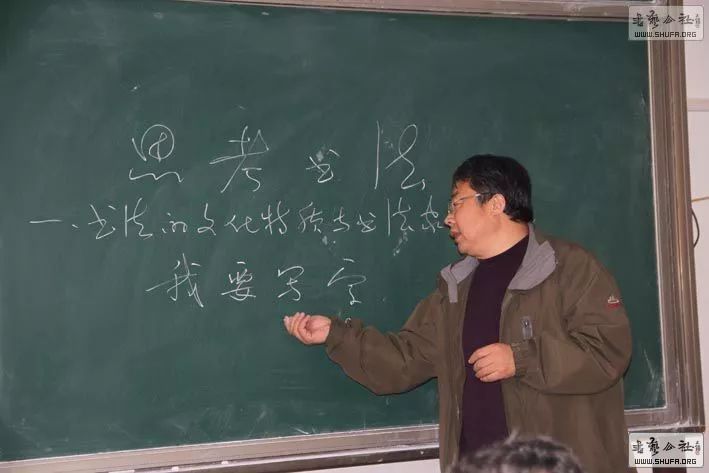 书艺公社
WWW.SHUFA.ORG
思考书法
一、书法的文化特质与书法家
我要写字
书艺公社
WWW.SHUFA.ORG